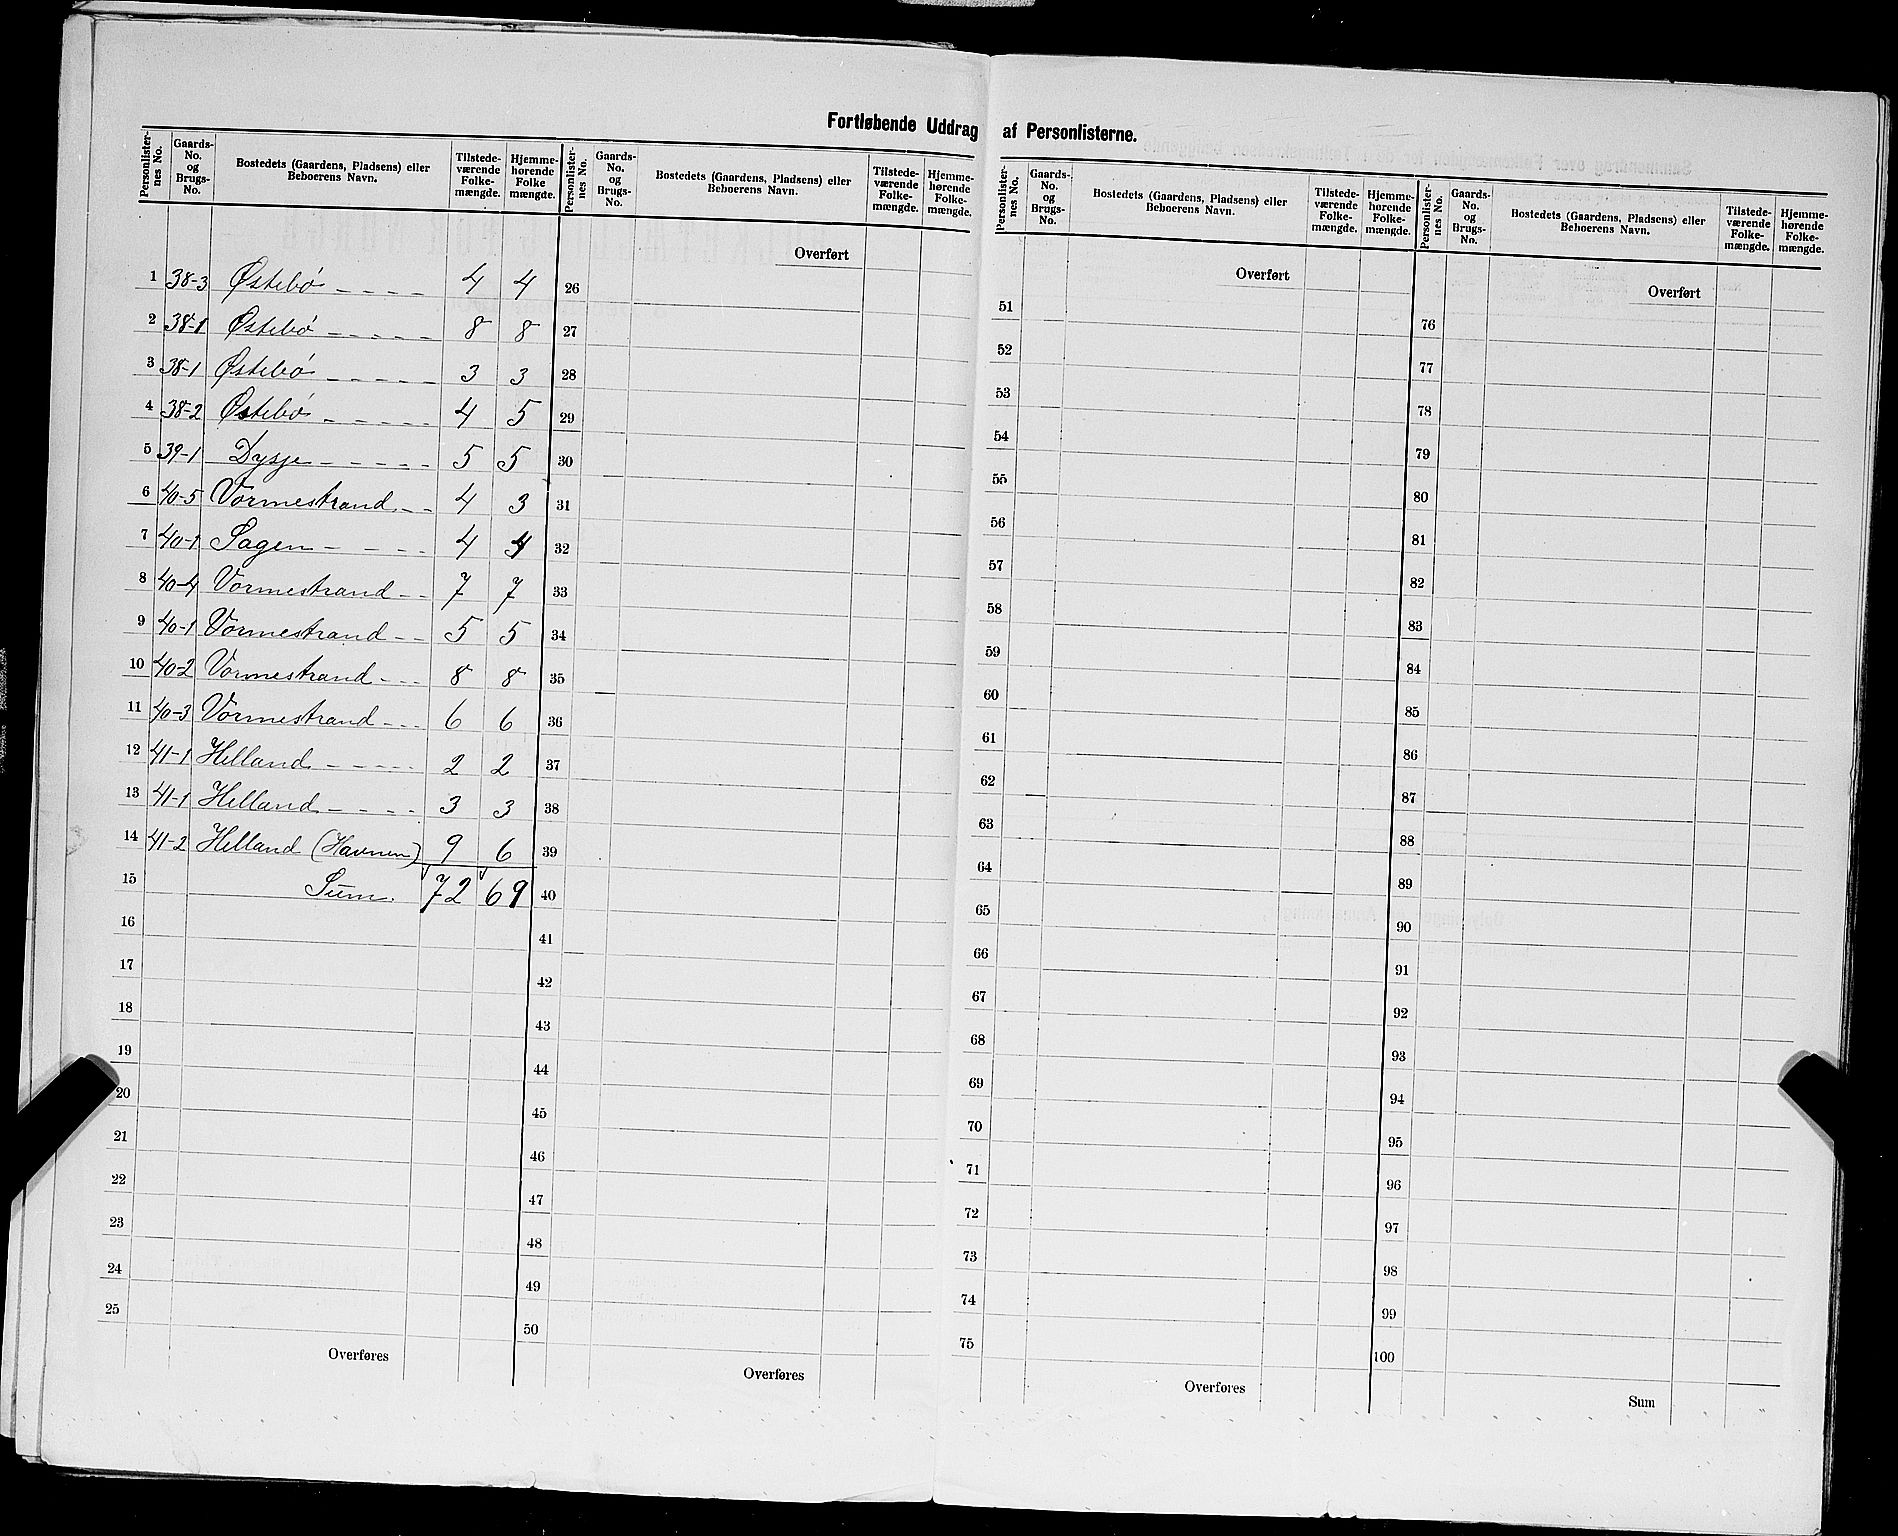 Fortløbende Uddrag af Personlisterne.
Personlister-nes No. Gaards-No. og Brugs-No. Bostedets (Gaardens, Pladsens) eller Beboerens Navn. Tilstede-værende Folke-mængde. Hjemme-hørende Folke mængde.
1 38-3 Østebø 4 4
2 38-1 Østebø 8 8
3 38-1 Østebø 3 3
4 38-2 Østebø 4 5
5 39-1 Dysje 5 5
6 40-5 Vormestrand 4 3
7 40-1 Sagen 4 4
8 40-4 Vormestrand 7 7
9 40-1 Vormestrand 5 5
10 40-2 Vormestrand 8 8
11 40-3 Vormestrand 6 6
12 41-1 Helland 2 2
13 41-1 Helland 3 3
14 41-2 Helland (Havnen) 9 6
15 Sum. 72 69
16
17
18
19
20
21
22
23
24
25
Overføres
Personlister-nes No. Gaards-No. og Brugs-No. Bostedets (Gaardens, Pladsens) eller Beboerens Navn. Tilstede-værende Folke-mængde. Hjemme-hørende Folke-mængde.
Overført
26
27
28
29
30
31
32
33
34
35
36
37
38
39
40
41
42
43
44
45
46
47
48
49
50
Overføres
Personlister-nes No. Gaards-No. og Brugs-No. Bostedets (Gaardens, Pladsens) eller Beboerens Navn. Tilstede-værende Folke-mængde. Hjemme-hørende Folke-mængde.
Overført
51
52
53
54
55
56
57
58
59
60
61
62
63
64
65
66
67
68
69
70
71
72
73
74
75
Overføres
Personlister-nes No. Gaards-No. og Brugs-No. Bostedets (Gaardens, Pladsens) eller Beboerens Navn. Tilstede-værende Folke-mængde. Hjemme-hørende Folke-mængde.
Overført
76
77
78
79
80
81
82
83
84
85
86
87
88
89
90
91
92
93
94
95
96
97
98
99
100
Sum